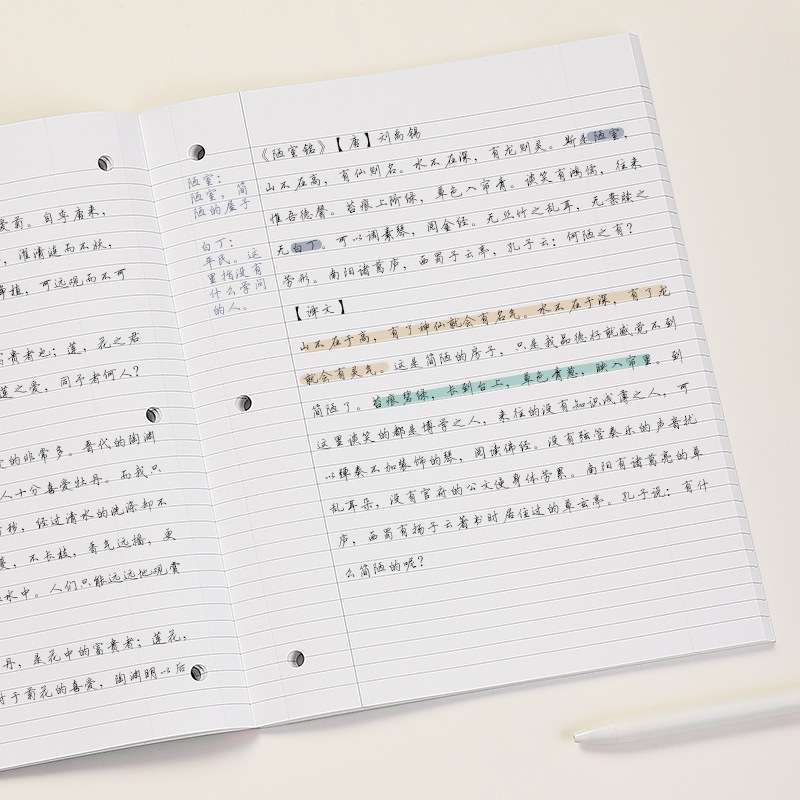 爱菊。自李唐来，
，濯清涟而不妖，
静植，可远观而不可
富贵者也；莲，花之君
莲之爱，同予者何人？
的非常多。晋代的陶渊
人十分喜爱牡丹。而我只
污秽，经过清水的洗涤却不
蔓，不长枝，香气远播，更
水中。人们只能远远地观赏
丹，是花中的富贵者；莲花，
对于菊花的喜爱，陶渊明以后
陋室：
陋室，简
陋的屋子
白丁：
平民。这
里指没有
什么学问
的人。
《陋室铭》【唐】刘禹锡
山不在高，有仙则名。水不在深，有龙则灵。斯是陋室，
惟吾德馨。苔痕上阶绿，草色入帘青。谈笑有鸿儒，往来
无白丁。可以调素琴，阅金经。无丝竹之乱耳，无案牍之
劳形。南阳诸葛庐，西蜀子云亭，孔子云：何陋之有？
【译文】
山不在于高，有了神仙就会有名气。水不在于深，有了龙
就会有灵气。这是简陋的房子，只是我品德好就感觉不到
简陋了。苔痕碧绿，长到台上，草色青葱，映入帘里。到
这里谈笑的都是博学之人，来往的没有知识浅薄之人，可
以弹奏不加装饰的琴，阅读佛经。没有弦管奏乐的声音扰
乱耳朵，没有官府的公文使身体劳累。南阳有诸葛亮的草
庐，西蜀有扬子云著书时居住过的草玄亭。孔子说：有什
么简陋的呢？